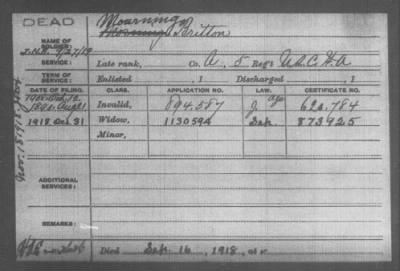 DEAD
Mourning
NAME OF SOLDIER: Mourning Britton
SERVICE: Late rank, Co. A, 5 Reg't U.S.C.H.A
TERM OF SERVICE: Enlisted , 1 Discharged , 1
DATE OF FILING. CLASS. APPLICATION NO. LAW. CERTIFICATE NO.
Invalid, 894.587 624.784
1918 Oct. 31 Widow, 1130594 873925
Minor,
ADDITIONAL SERVICES:
REMARKS:
Died Sep. 16, 1918, at